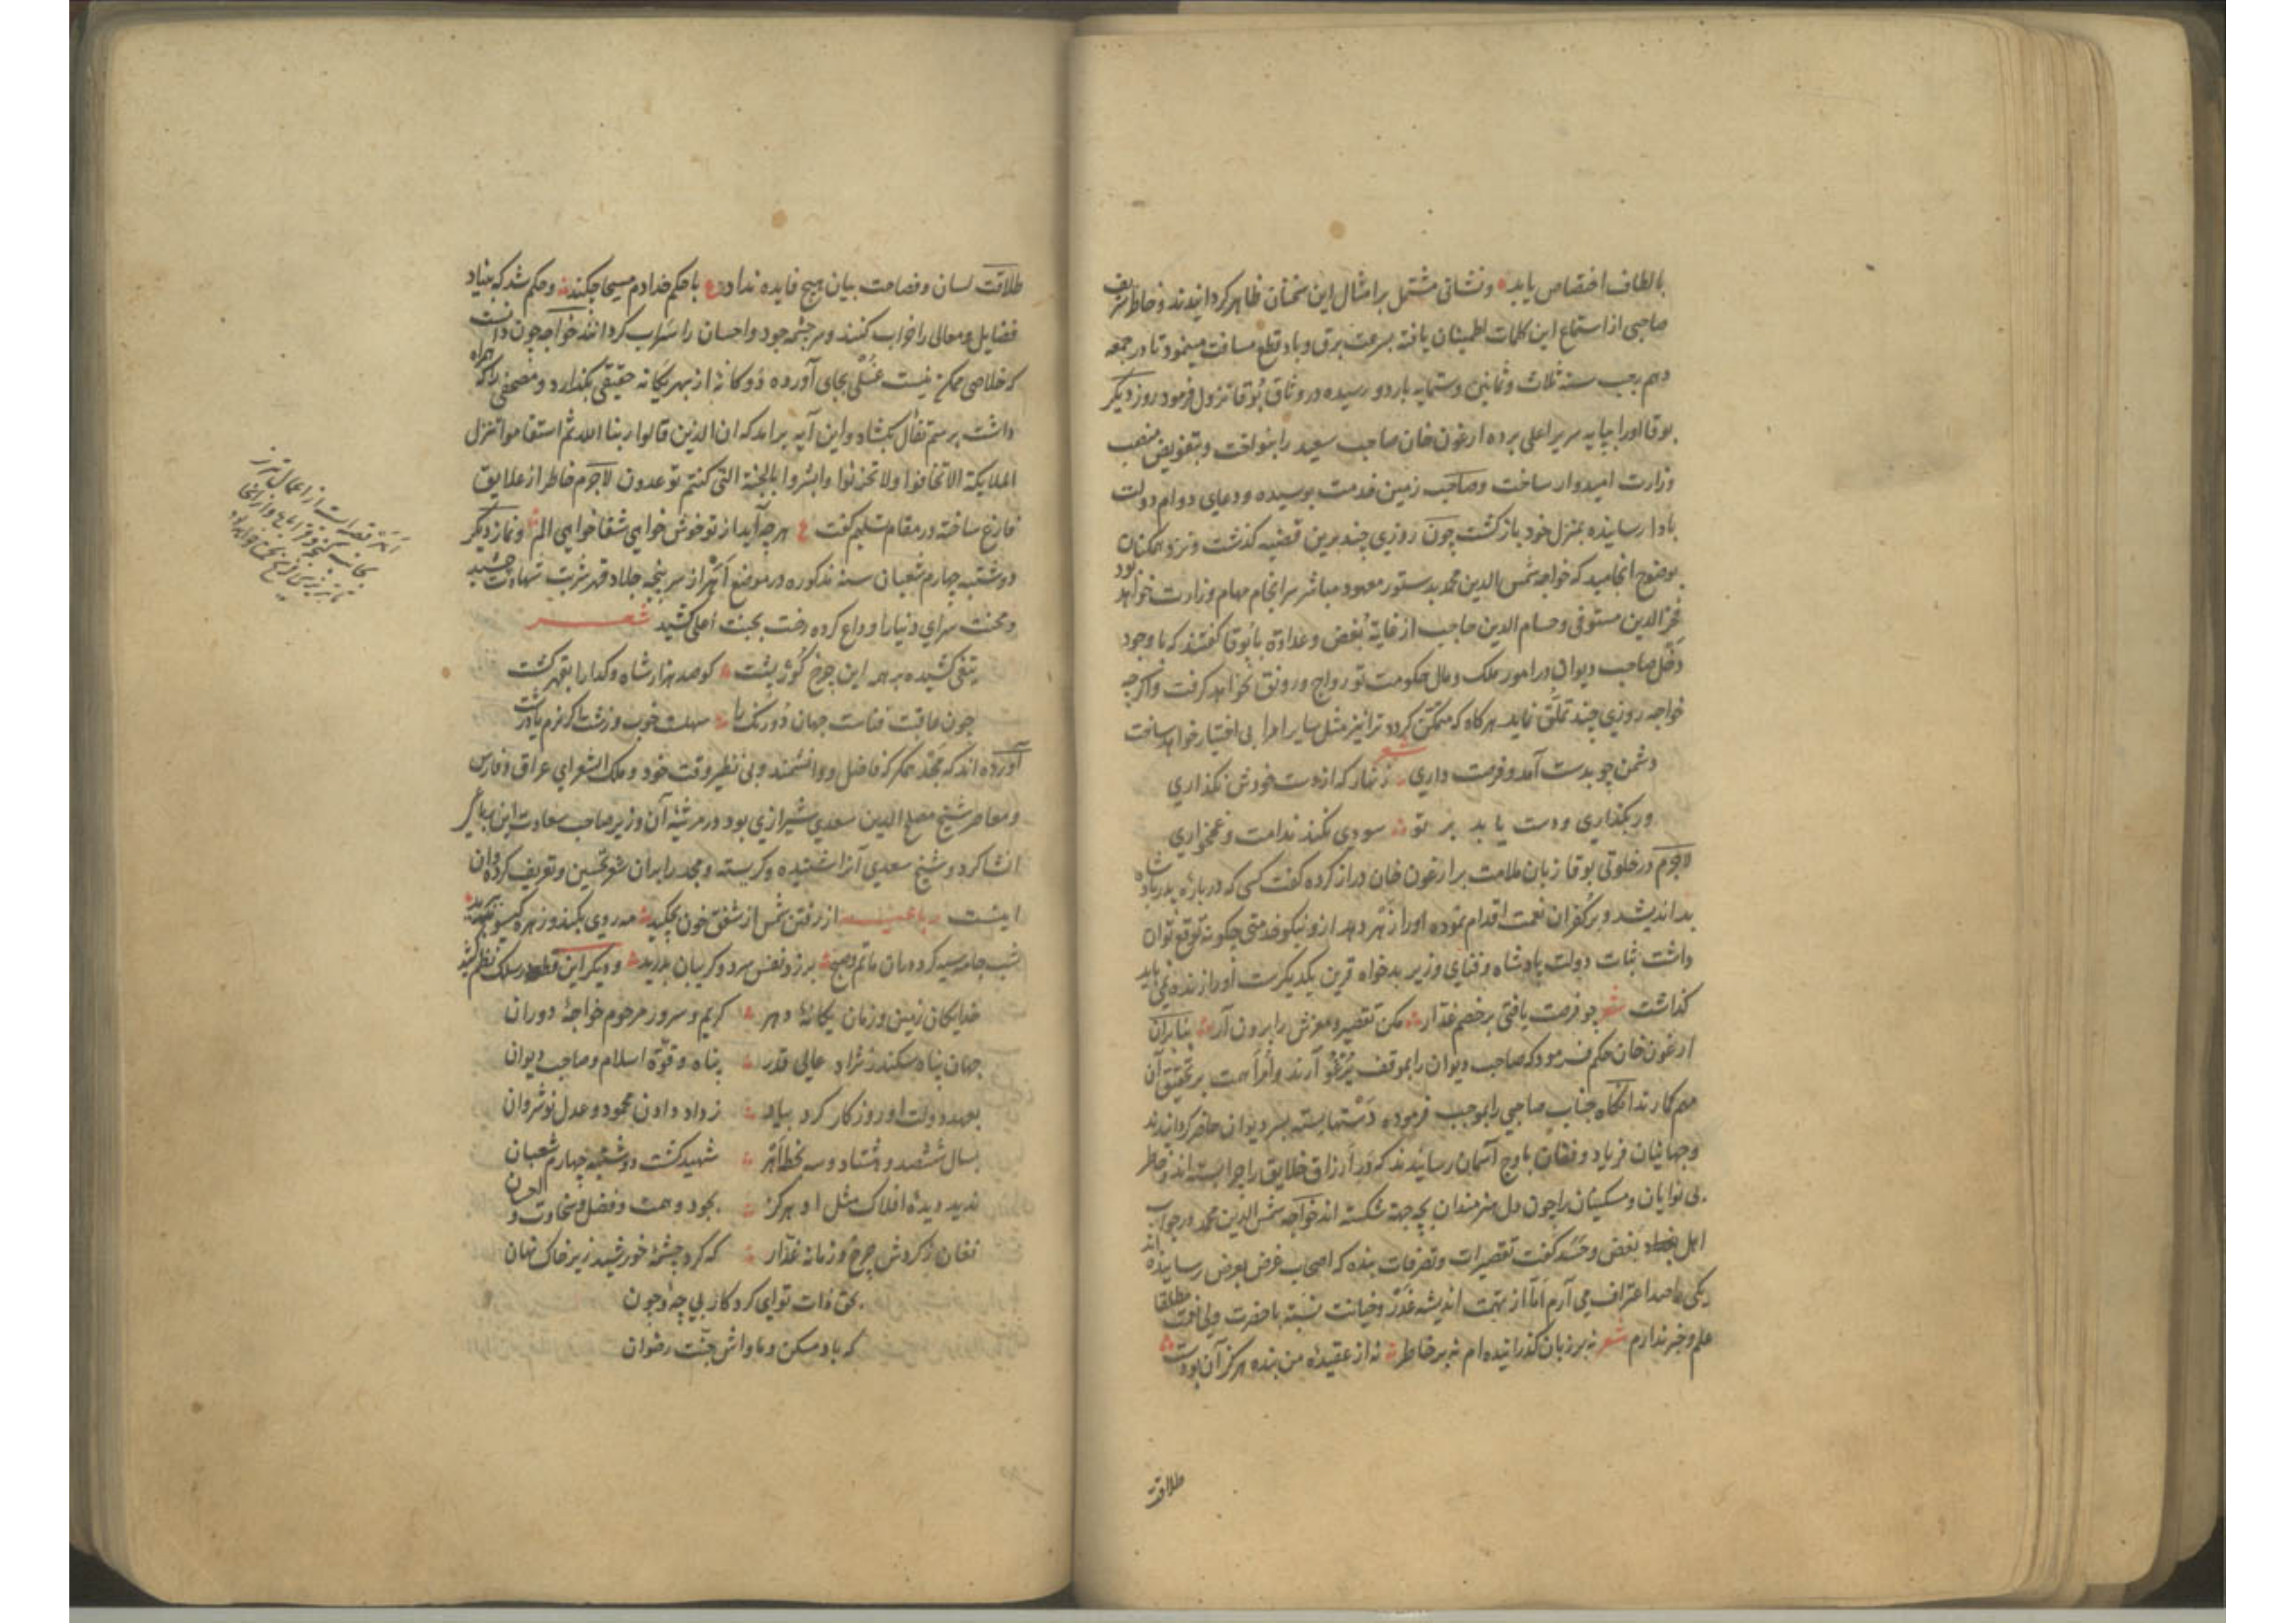 بالطاف اختصاص یابد و نشانی مشتمل بر امثال این سخنان ظاهر کردانیدند و خاطر شریف
صاحبی از استماع این کلمات اطمینان یافته بسرعت برق و باد قطع مسافت مینمود تا در جمعه
دهم رجب سنه ثلاث و ثمانین و ستمایه باردو رسیده در وثاق بوقا نزول فرمود روز دیکر
بوقا اورا بپایه سریر اعلی برده ارغون خان صاحب سعید را بنواخت و بتفویض منصب
وزارت امیدوار ساخت و صاحب زمین خدمت بوسیده و دعای دوام دولت
بادا رسانیده بمنزل خود باز کشت چون روزی چند برین قضیه کذشت و نزد همکنان
بوضوح انجامید که خواجه شمس الدین محمد بدستور معهود مباشر سرانجام مهام وزارت خواهد بود
فخر الدین مستوفی و حسام الدین حاجب از غایة بغض و عداوة با بوقا کفتند که با وجود
دخل صاحب دیوان در امور ملک و مال حکومت تو رواج و رونق نخواهد کرفت و اکرچه
خواجه روزی چند تملق نماید هرکاه که متمکن کردد ترا نیز مثل سایر امرا بی اختیار خواهد ساخت
شعر
دشمن چو بدست آمد و فرصت داری زنهار که از دست خودش نکذاری
ور بکذاری و دست یابد بر تو سودی نکند ندامت و غمخواری
لاجرم در خلوتی بوقا زبان ملامت بر ارغون خان دراز کرده کفت کسی که درباره پدر پادشاه
بد اندیشد و بر کفران نعمت اقدام نموده اورا زهر دهد ازو نیکو خدمتی چکونه توقع توان
داشت ثبات دولت پادشاه و فنای وزیر بدخواه قرین یکدیکرست اورا زنده نمی باید
کذاشت شعر چو فرصت یافتی بر خصم غدار مکن تقصیر و مغزش را برون آر بنابران
ارغون خان حکم فرمود که صاحب دیوان را بموقف یرغو آرند و امرا همت بر تحقیق آن
مهم کمارند آنکاه جناب صاحبی را بموجب فرموده دستها بسته بسر دیوان حاضر کردانیدند
و جهانیان فریاد و فغان باوج آسمان رسانیدند که در ارزاق خلایق را چرا بسته اند و خاطر
بی نوایان و مسکینان را چون دل هنرمندان بچه جهة شکسته اند خواجه شمس الدین محمد در جواب
اهل بغض و حسد کفت تقصیرات و تصرفات بنده که اصحاب غرض بعرض رسانیده اند
یکی باصد اعتراف می آرم اما از تهمت اندیشه غدر و خیانت نسبة باحضرت ولی نعمت مطلقا
علم و خبر ندارم شعر نه بر زبان کذرانیده ام نه بر خاطر نه از عقیده من بنده هرکز آن بودست
طلاقت
طلاقت لسان و فصاحت بیان هیچ فایده نداد ع با حکم خدا دم مسیحا چکند و حکم شد که بنیاد
فضایل و معالی را خراب کنند و سر چشمه جود و احسان را سراب کردانند خواجه چون دانست
که خلاصی ممکن نیست غسلی بجای آورده دوکانه از بهر یکانه حقیقی بکذارد و مصحفی را که همراه
داشت برسم تفال بکشاد و این آیه برامد که ان الذین قالوا ربنا الله ثم استقاموا تتنزل
الملایکة الا تخافوا ولا تحزنوا وابشروا بالجنة التی کنتم توعدون لاجرم خاطر از علایق
فارغ ساخته در مقام تسلیم کفت ع هرچه آید از تو خوش خواهی شفا خواهی الم و نماز دیکر
دوشنبه چهارم شعبان سنه مذکوره در موضع اهر از سر پنجه جلاد قهر شربت شهادت چشید
و محنت سرای دنیا را وداع کرده رخت بجنت اعلی کشید شعر
تیغی کشیده بر مه این چرخ کوژپشت کو صد هزار شاه و کدا را بقهر کشت
چون عاقبت فناست جهان دو رنک را سهلست خوب و زشت اکر نرم یا درشت
آورده اند که مجد همکر که فاضل و دانشمند و بی نظیر وقت خود و ملک الشعرای عراق و فارس
و معاصر شیخ مصلح الدین سعدی شیرازی بود در مرثیه آن وزیر صاحب سعادت این رباعی
انشا کرد و شیخ سعدی آنرا شنیده و کریسته و مجد را بران شعر تحسین و تعریف کرده و آن
اینست رباعیه از رفتن شمس از شفق خون بچکید مه روی بکند و زهره کیسو ببرید
شب جامه سیه کرد در ان ماتم و صبح بر زد نفس سرد و کریبان بدرید و دیکر این قطعه در سلک نظم کشید
خدایکان زمین و زمان یکانه دهر کریم و سرور مرحوم خواجه دوران
جهان پناه سکندر نژاد عالی قدر پناه و قوة اسلام و صاحب دیوان
بعهد دولت او روزکار کرد بیاد ز داد دادن محمود و عدل نوشروان
بسال ششصد و هشتاد و سه بخطه اهر شهید کشت دوشنبه چهارم شعبان
ندید دیده افلاک مثل او هرکز بجود و همت و فضل و سخاوت و احسان
فغان ز کردش چرخ و زمانه غدار که کرد چشمه خورشید زیر خاک نهان
بحق ذات تو ای کردکار بی چه و چون
که باد مسکن و ماواش جنت رضوان